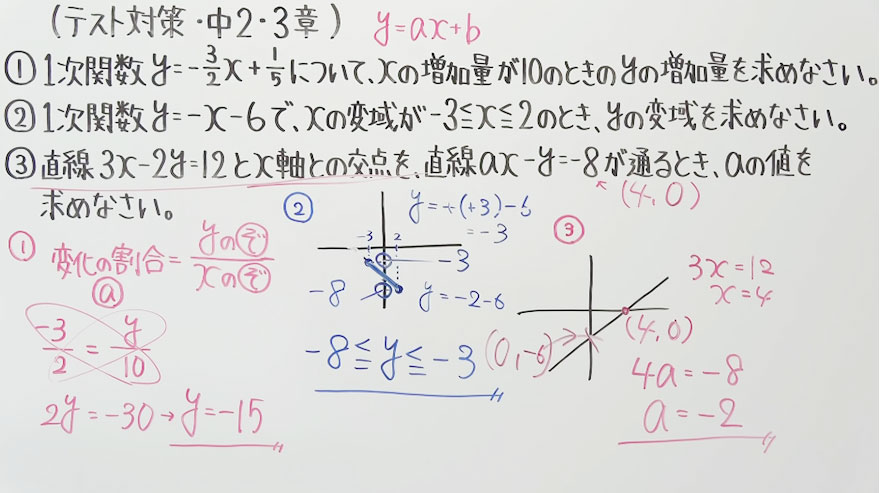 (テスト対策・中2・3章) y=ax+b
①1次関数y=-3/2x+1/5について、xの増加量が10のときのyの増加量を求めなさい。
②1次関数y=-x-6で、xの変域が-3≦x≦2のとき、yの変域を求めなさい。
③直線3x-2y=12とx軸との交点を、直線ax-y=-8が通るとき、aの値を
求めなさい。
(4,0)
①
変化の割合=yのぞ/xのぞ
a
-3/2=y/10
2y=-30→y=-15
②
-3 2
-3
-8
y=-2-6
-8≦y≦-3
③
3x=12
x=4
(4,0)
(0,-6)
4a=-8
a=-2